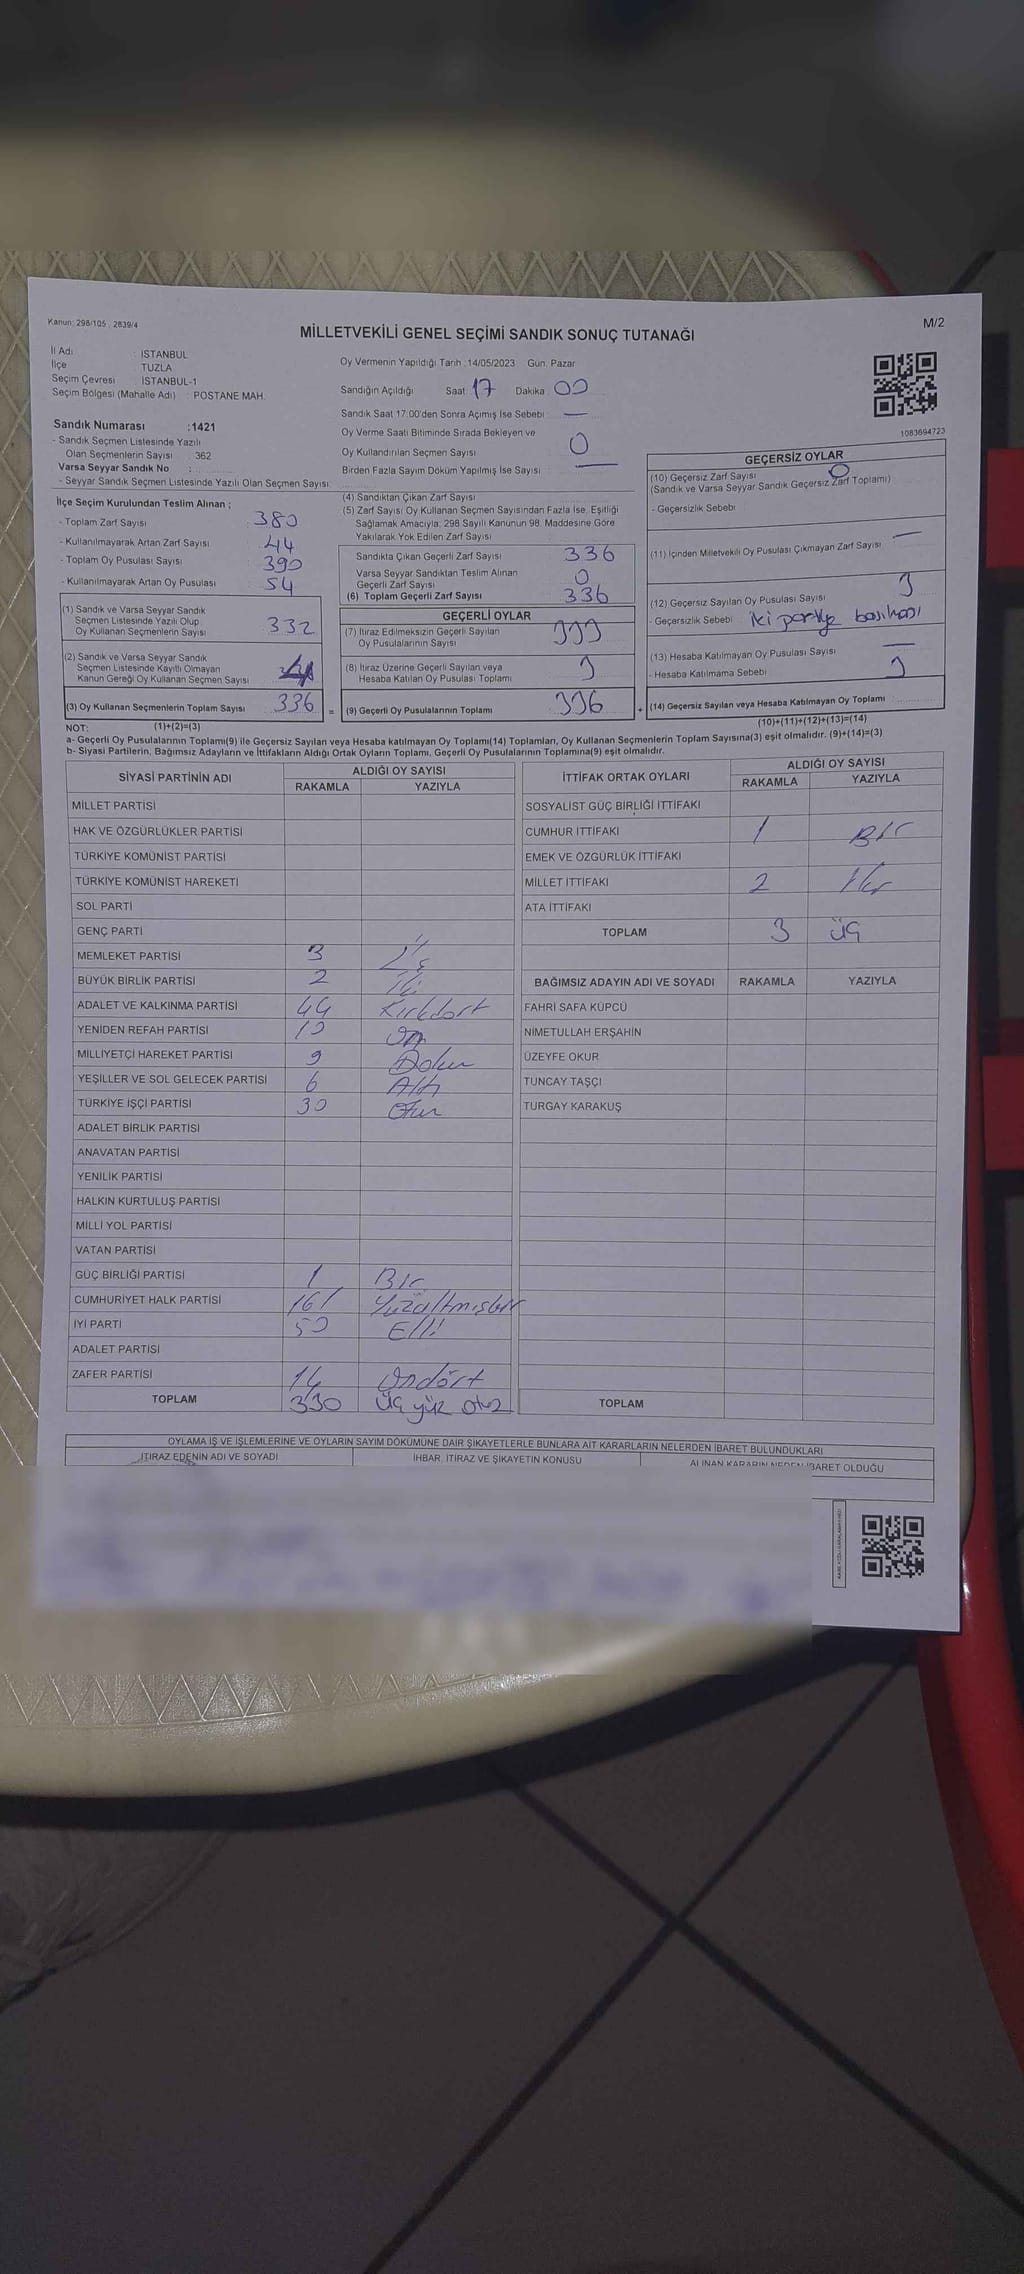 Kanun: 298/105 , 2839/4
M/2
MİLLETVEKİLİ GENEL SEÇİMİ SANDIK SONUÇ TUTANAĞI
İl Adı : İSTANBUL
İlçe TUZLA
Seçim Çevresi : İSTANBUL-1
Seçim Bölgesi (Mahalle Adı) : POSTANE MAH.
Oy Vermenin Yapıldığı Tarih :14/05/2023 Gün: Pazar
Sandığın Açıldığı Saat: 17 Dakika 00
Sandık Saat 17:00'den Sonra Açımış İse Sebebi : —
Oy Verme Saati Bitiminde Sırada Bekleyen ve
Oy Kullandırılan Seçmen Sayısı : 0
Birden Fazla Sayım Döküm Yapılmış İse Sayısı : —
1083694723
Sandık Numarası :1421
- Sandık Seçmen Listesinde Yazılı
Olan Seçmenlerin Sayısı : 362
Varsa Seyyar Sandık No :
- Seyyar Sandık Seçmen Listesinde Yazılı Olan Seçmen Sayısı:
İlçe Seçim Kurulundan Teslim Alınan ;
- Toplam Zarf Sayısı 380
- Kullanılmayarak Artan Zarf Sayısı 44
- Toplam Oy Pusulası Sayısı 390
- Kullanılmayarak Artan Oy Pusulası 54
(1) Sandık ve Varsa Seyyar Sandık
Seçmen Listesinde Yazılı Olup
Oy Kullanan Seçmenlerin Sayısı 332
(2) Sandık ve Varsa Seyyar Sandık
Seçmen Listesinde Kayıtlı Olmayan
Kanun Gereği Oy Kullanan Seçmen Sayısı
(3) Oy Kullanan Seçmenlerin Toplam Sayısı 336 =
(4) Sandıktan Çıkan Zarf Sayısı
(5) Zarf Sayısı Oy Kullanan Seçmen Sayısından Fazla İse, Eşitliği
Sağlamak Amacıyla; 298 Sayılı Kanunun 98. Maddesine Göre
Yakılarak Yok Edilen Zarf Sayısı
Sandıkta Çıkan Geçerli Zarf Sayısı 336
Varsa Seyyar Sandıktan Teslim Alınan
Geçerli Zarf Sayısı 0
(6) Toplam Geçerli Zarf Sayısı 336
GEÇERLİ OYLAR
(7) İtiraz Edilmeksizin Geçerli Sayılan
Oy Pusulalarının Sayısı 333
(8) İtiraz Üzerine Geçerli Sayılan veya
Hesaba Katılan Oy Pusulası Toplamı 3
(9) Geçerli Oy Pusulalarının Toplamı 336 +
GEÇERSİZ OYLAR
(10) Geçersiz Zarf Sayısı 0
(Sandık ve Varsa Seyyar Sandık Geçersiz Zarf Toplamı)
- Geçersizlik Sebebi
(11) İçinden Milletvekili Oy Pusulası Çıkmayan Zarf Sayısı —
(12) Geçersiz Sayılan Oy Pusulası Sayısı 3
- Geçersizlik Sebebi : iki partiye basılması
(13) Hesaba Katılmayan Oy Pusulası Sayısı —
- Hesaba Katılmama Sebebi 3
(14) Geçersiz Sayılan veya Hesaba Katılmayan Oy Toplamı
NOT: (1)+(2)=(3) (10)+(11)+(12)+(13)=(14)
a- Geçerli Oy Pusulalarının Toplamı(9) ile Geçersiz Sayılan veya Hesaba katılmayan Oy Toplamı(14) Toplamları, Oy Kullanan Seçmenlerin Toplam Sayısına(3) eşit olmalıdır. (9)+(14)=(3)
b- Siyasi Partilerin, Bağımsız Adayların ve İttifakların Aldığı Ortak Oyların Toplamı, Geçerli Oy Pusulalarının Toplamına(9) eşit olmalıdır.
SİYASİ PARTİNİN ADI ALDIĞI OY SAYISI
RAKAMLA YAZIYLA
MİLLET PARTİSİ
HAK VE ÖZGÜRLÜKLER PARTİSİ
TÜRKİYE KOMÜNİST PARTİSİ
TÜRKİYE KOMÜNİST HAREKETİ
SOL PARTİ
GENÇ PARTİ
MEMLEKET PARTİSİ 3 Üç
BÜYÜK BİRLİK PARTİSİ 2 İki
ADALET VE KALKINMA PARTİSİ 44 Kırkdört
YENİDEN REFAH PARTİSİ 10 On
MİLLİYETÇİ HAREKET PARTİSİ 9 Dokuz
YEŞİLLER VE SOL GELECEK PARTİSİ 6 Altı
TÜRKİYE İŞÇİ PARTİSİ 30 Otuz
ADALET BİRLİK PARTİSİ
ANAVATAN PARTİSİ
YENİLİK PARTİSİ
HALKIN KURTULUŞ PARTİSİ
MİLLİ YOL PARTİSİ
VATAN PARTİSİ
GÜÇ BİRLİĞİ PARTİSİ 1 Bir
CUMHURİYET HALK PARTİSİ 161 Yüzaltmışbir
İYİ PARTİ 50 Elli
ADALET PARTİSİ
ZAFER PARTİSİ 14 Ondört
TOPLAM 330 Üç yüz otuz
İTTİFAK ORTAK OYLARI ALDIĞI OY SAYISI
RAKAMLA YAZIYLA
SOSYALİST GÜÇ BİRLİĞİ İTTİFAKI
CUMHUR İTTİFAKI 1 Bir
EMEK VE ÖZGÜRLÜK İTTİFAKI
MİLLET İTTİFAKI 2 İki
ATA İTTİFAKI
TOPLAM 3 üç
BAĞIMSIZ ADAYIN ADI VE SOYADI RAKAMLA YAZIYLA
FAHRİ SAFA KÜPCÜ
NİMETULLAH ERŞAHİN
ÜZEYFE OKUR
TUNCAY TAŞÇI
TURGAY KARAKUŞ
TOPLAM
OYLAMA İŞ VE İŞLEMLERİNE VE OYLARIN SAYIM DÖKÜMÜNE DAİR ŞİKAYETLERLE BUNLARA AİT KARARLARIN NELERDEN İBARET BULUNDUKLARI
İTİRAZ EDENİN ADI VE SOYADI İHBAR, İTİRAZ VE ŞİKAYETİN KONUSU ALINAN KARARIN NEDEN İBARET OLDUĞU